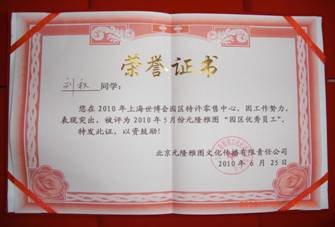 荣誉证书
刘秋 同学：
您在2010年上海世博会园区特许零售中心，因工作努力，
表现突出，被评为2010年5月份元隆雅图“园区优秀员工”，
特发此证，以资鼓励！
北京元隆雅图文化传播有限责任公司
2010年6月25日